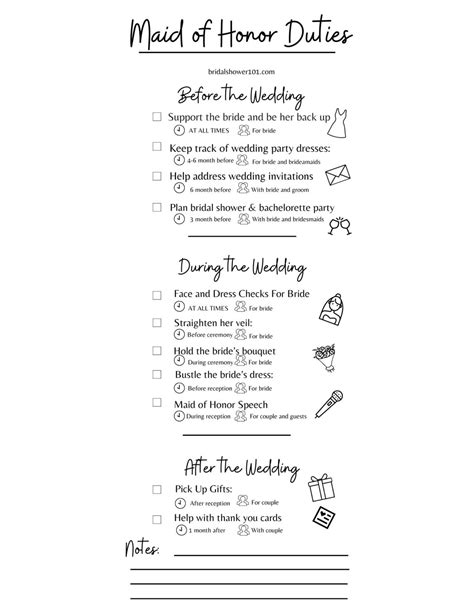 Maid of Honor Duties
bridalshower101.com
Before The Wedding
Support the bride and be her back up
AT ALL TIMES For bride
Keep track of wedding party dresses:
4-6 month before For bride and brideamaids
Help address wedding invitations
6 month before With bride and groom
Plan bridal shower & bachelorette party
3 month before With bride and bridesmaids
During The Wedding
Face and Dress Checks For Bride
AT ALL TIMES For bride
Straighten her veil:
Before ceremony For bride
Hold the bride's bouquet
During ceremony For bride
Bustle the bride's dress:
Before reception For bride
Maid of Honor Speech
During reception For couple and guests
After The Wedding
Pick Up Gifts:
After reception For couple
Help with thank you cards
1 month after With couple
Notes: